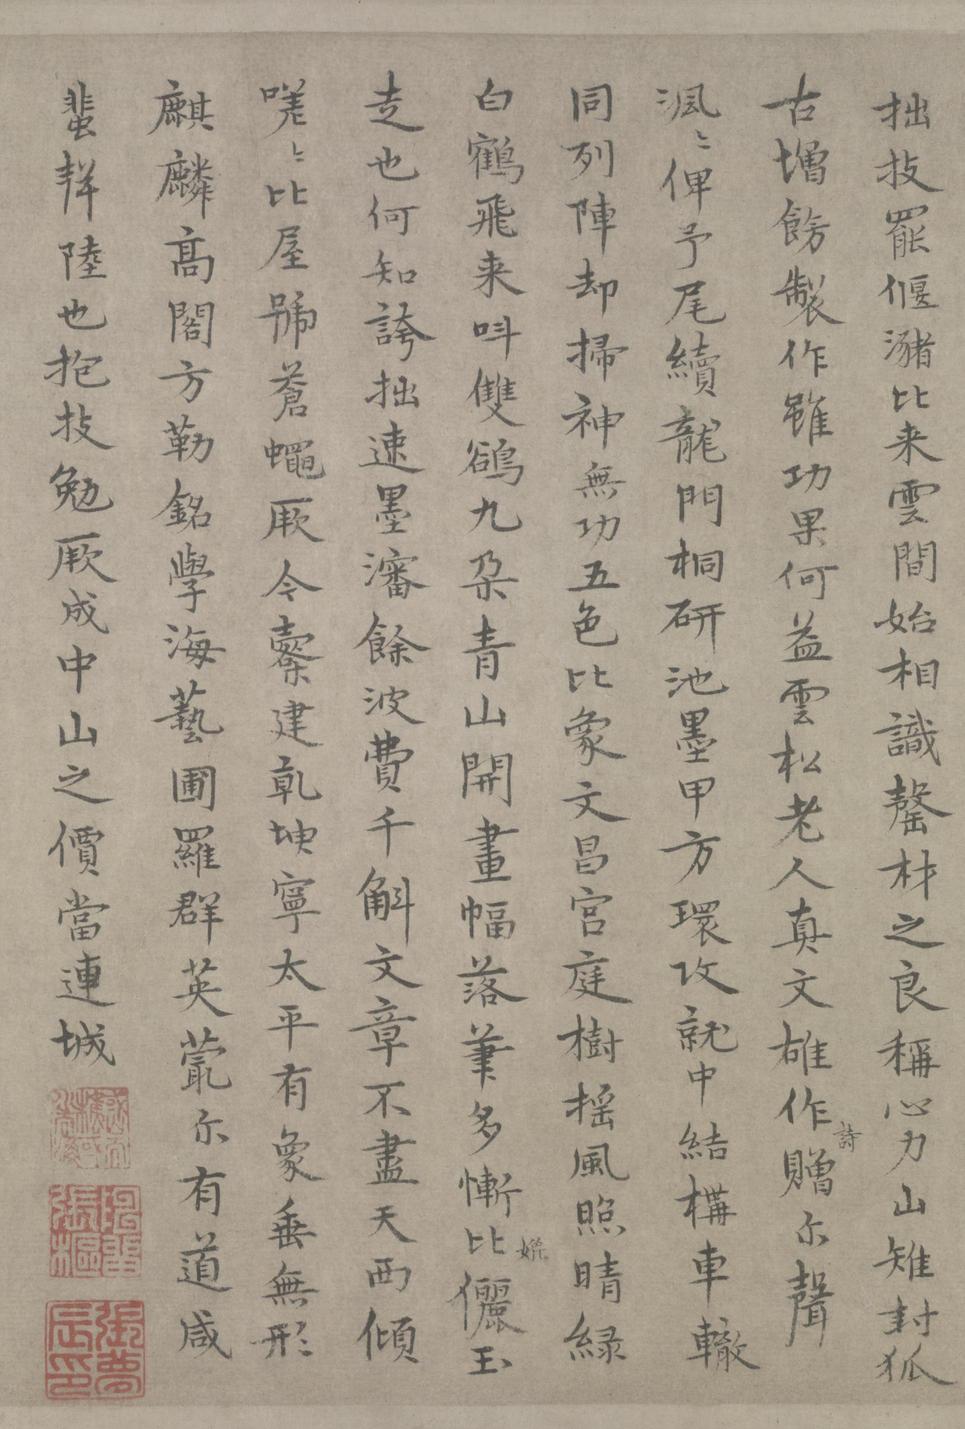 拙技罷偃瀦比来雲間始相識罄材之良稱心力山雉封狐
古增餝製作雖功果何益雲松老人真文雄作詩贈尓聲
渢〻俾予尾續龍門桐研池墨甲方環攻就中結構車轍
同列陣却掃神無功五色比象文昌宮庭樹揺風照晴緑
白鶴飛来叫雙鵒九朶青山開畫幅落筆多慚比儷玉
走也何知誇拙速墨瀋餘波費千斛文章不盡天西傾
嗟〻比屋號蒼蠅厥令櫜建乹坤寧太平有象垂無形
麒麟高閣方勒銘學海藝圃羅群英甍尓有道咸
蜚䍧陸也抱技勉厥成中山之價當連城
張夢辰印